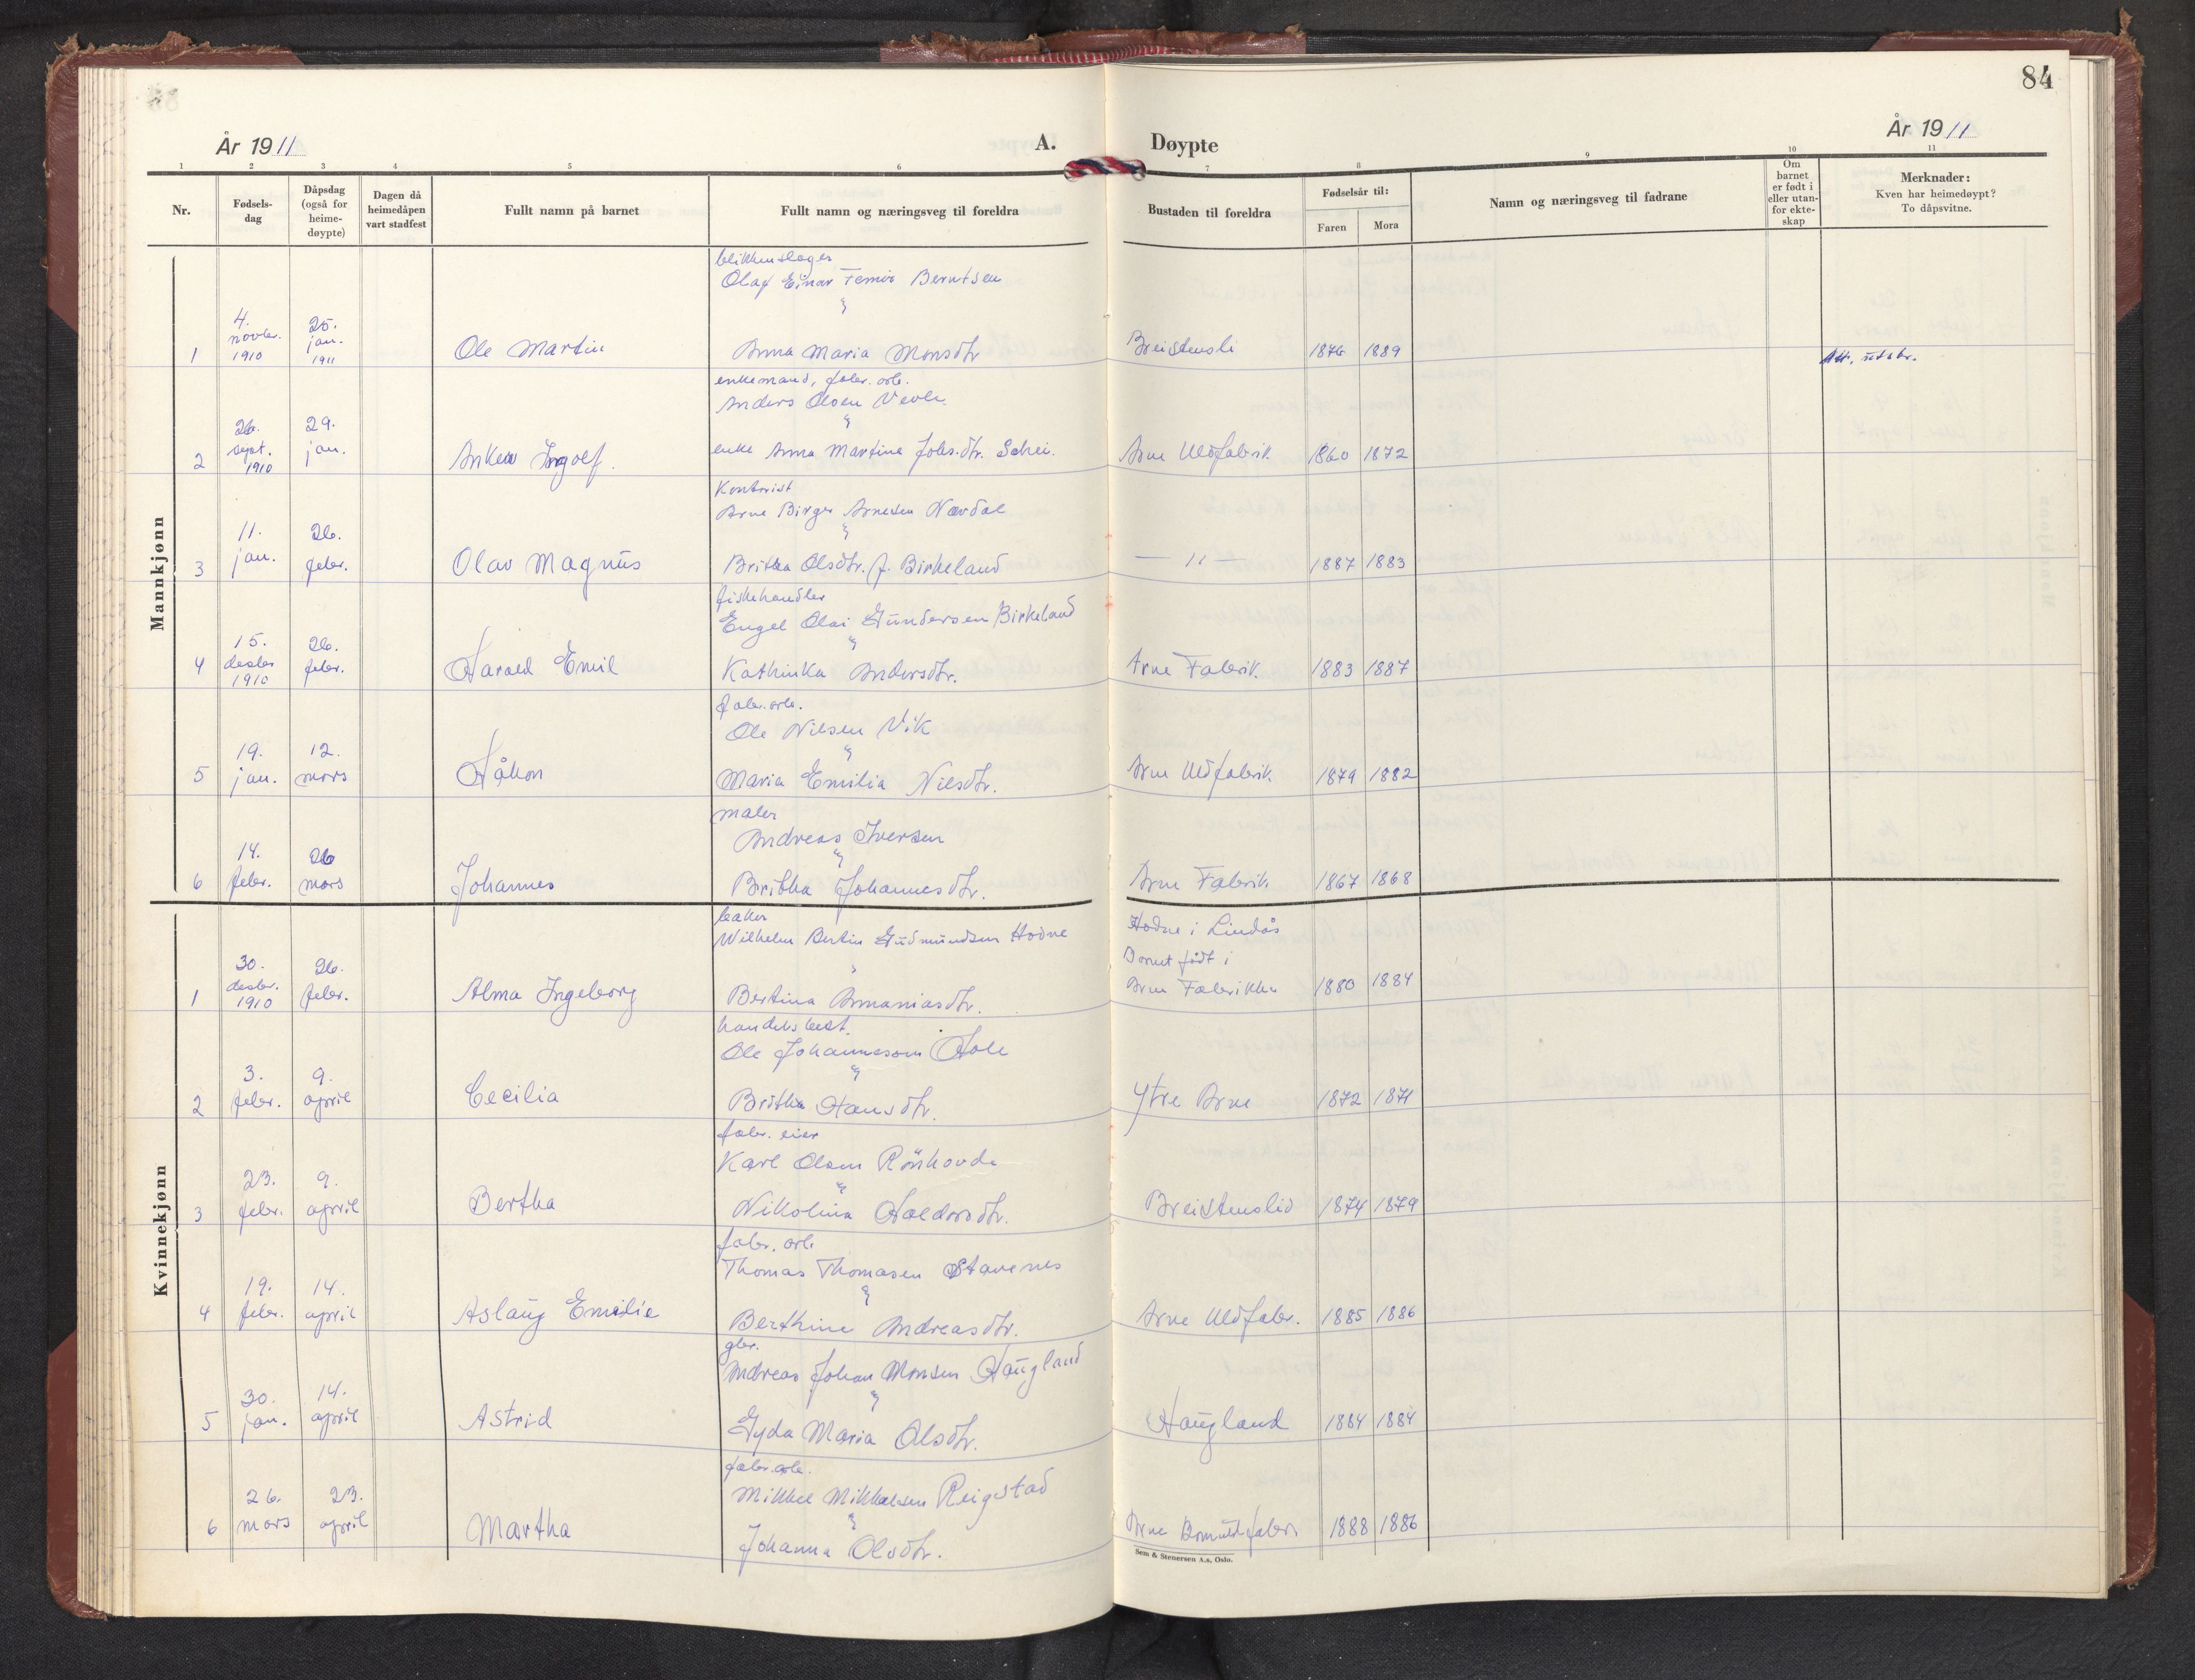 84
År 1911
A.
Døypte
År 1911
1 2 3 4 5 6 7 8 9 10 11
Nr.
Fødsels-
dag
Dåpsdag
(også for
heime-
døypte)
Dagen då
heimedåpen
vart stadfest
Fullt namn på barnet
Fullt namn og næringsveg til foreldra
Bustaden til foreldra
Fødselsår til:
Faren Mora
Namn og næringsveg til fadrane
Om
barnet
er født i
eller utan-
for ekte-
skap
Merknader:
Kven har heimedøypt?
To dåpsvitne.
Mannkjønn
blikkenslager
Olaf Einar Berntsen
&
1 4. novbr. 1910 25. jan. 1911 Ole Martin Anna Maria Monsdtr Breistensli 1876 1889 Att. utskr.
enkemand, fabr. arb.
Anders Olsen Vevle
&
2 26. sept. 1910 29. jan. Ankew Ingolf enke Anna Martine Johs.dtr. Arne Uldfabrik 1860 1872
Kontorist
Arne Birger Arnesen Navdal
&
3 11. jan. 26. febr. Olav Magnus Britha Olsdtr. f. Birkeland — " — 1887 1883
fiskehandler
Engel Olai Gundersen Birkeland
&
4 15. desbr 1910 26. febr. Harald Emil Kathinka Andersdtr. Arne Fabrik 1883 1887
fabr. arb.
Ole Nilsen Vik
&
5 19. jan. 12. mars Håkon Maria Emilia Nilsdtr. Arne Uldfabrik 1879 1882
maler
Andreas Iversen
&
6 14. febr. 26 mars Johannes Britha Johannesdtr. Arne Fabrik 1867 1868
Kvinnekjønn
baker
Wilhelm Bertin Gudmundsen Hodne Hodne i Lindås
& Barnet født i
1 30. desbr. 1910 26. febr. Alma Ingeborg Bertina Annaniasdtr. Arne Fabrikker 1880 1884
handelsbest.
Ole Johannesson Hole
&
2 3. febr. 9. april Cecilia Britha Hansdtr. Ytre Arne 1872 1871
fabr. eier
Karl Olsen Rönhovde
&
3 23. febr. 9. april Bertha Nikolina Haldorsdtr. Breistenslid 1874 1879
fabr. arb
Thomas Thomasen Stavenes
&
4 19. febr. 14. april Aslaug Emilie Berthine Andreasdtr. Arne Uldfabr. 1885 1886
gbr.
Andreas Johan Monsen Haugland
&
5 30. jan. 14. april Astrid Gyda Maria Olsdtr. Haugland 1884 1884
fabr. arb.
Mikkel Mikkelsen Reigstad
&
6 26. mars 23. april Martha Johanna Olsdtr. Arne Bomuldsfabr. 1888 1886
Sem & Stenersen A.s, Oslo.